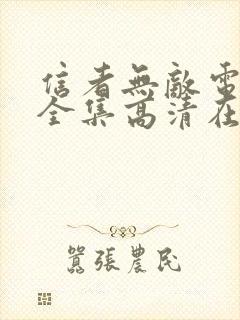 信者無敵電
全集高清在
囂張農民